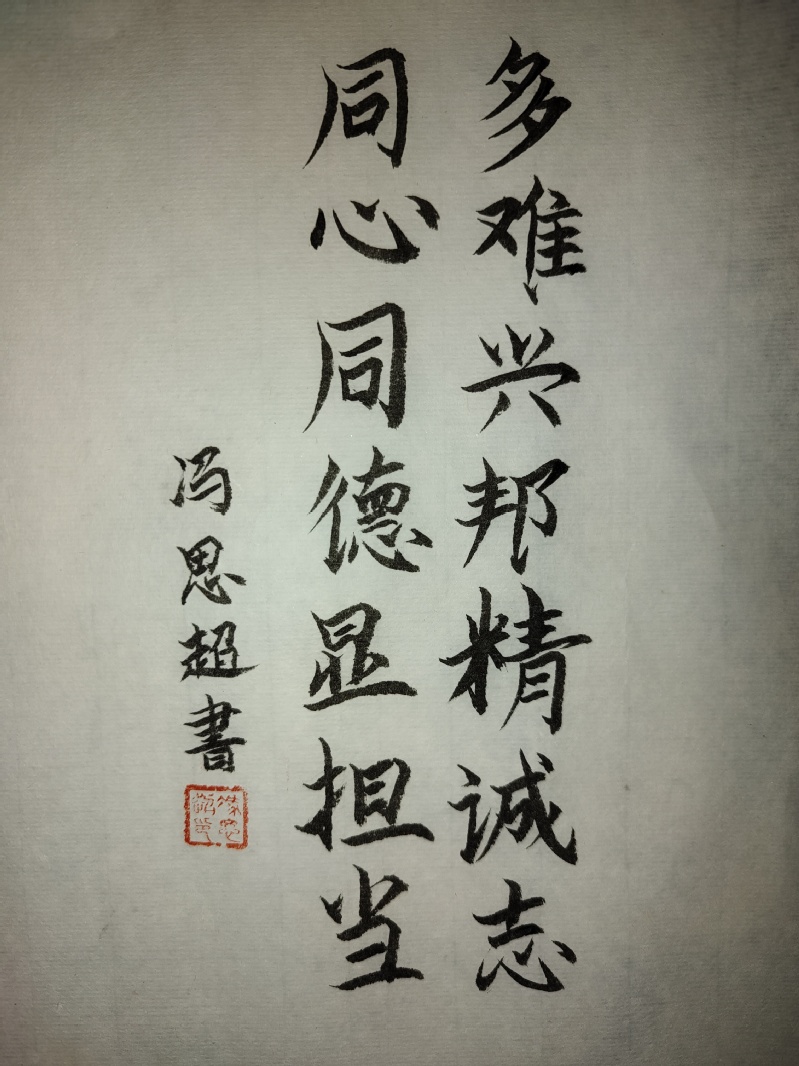 多难兴邦精诚志
同心同德显担当
冯思超書